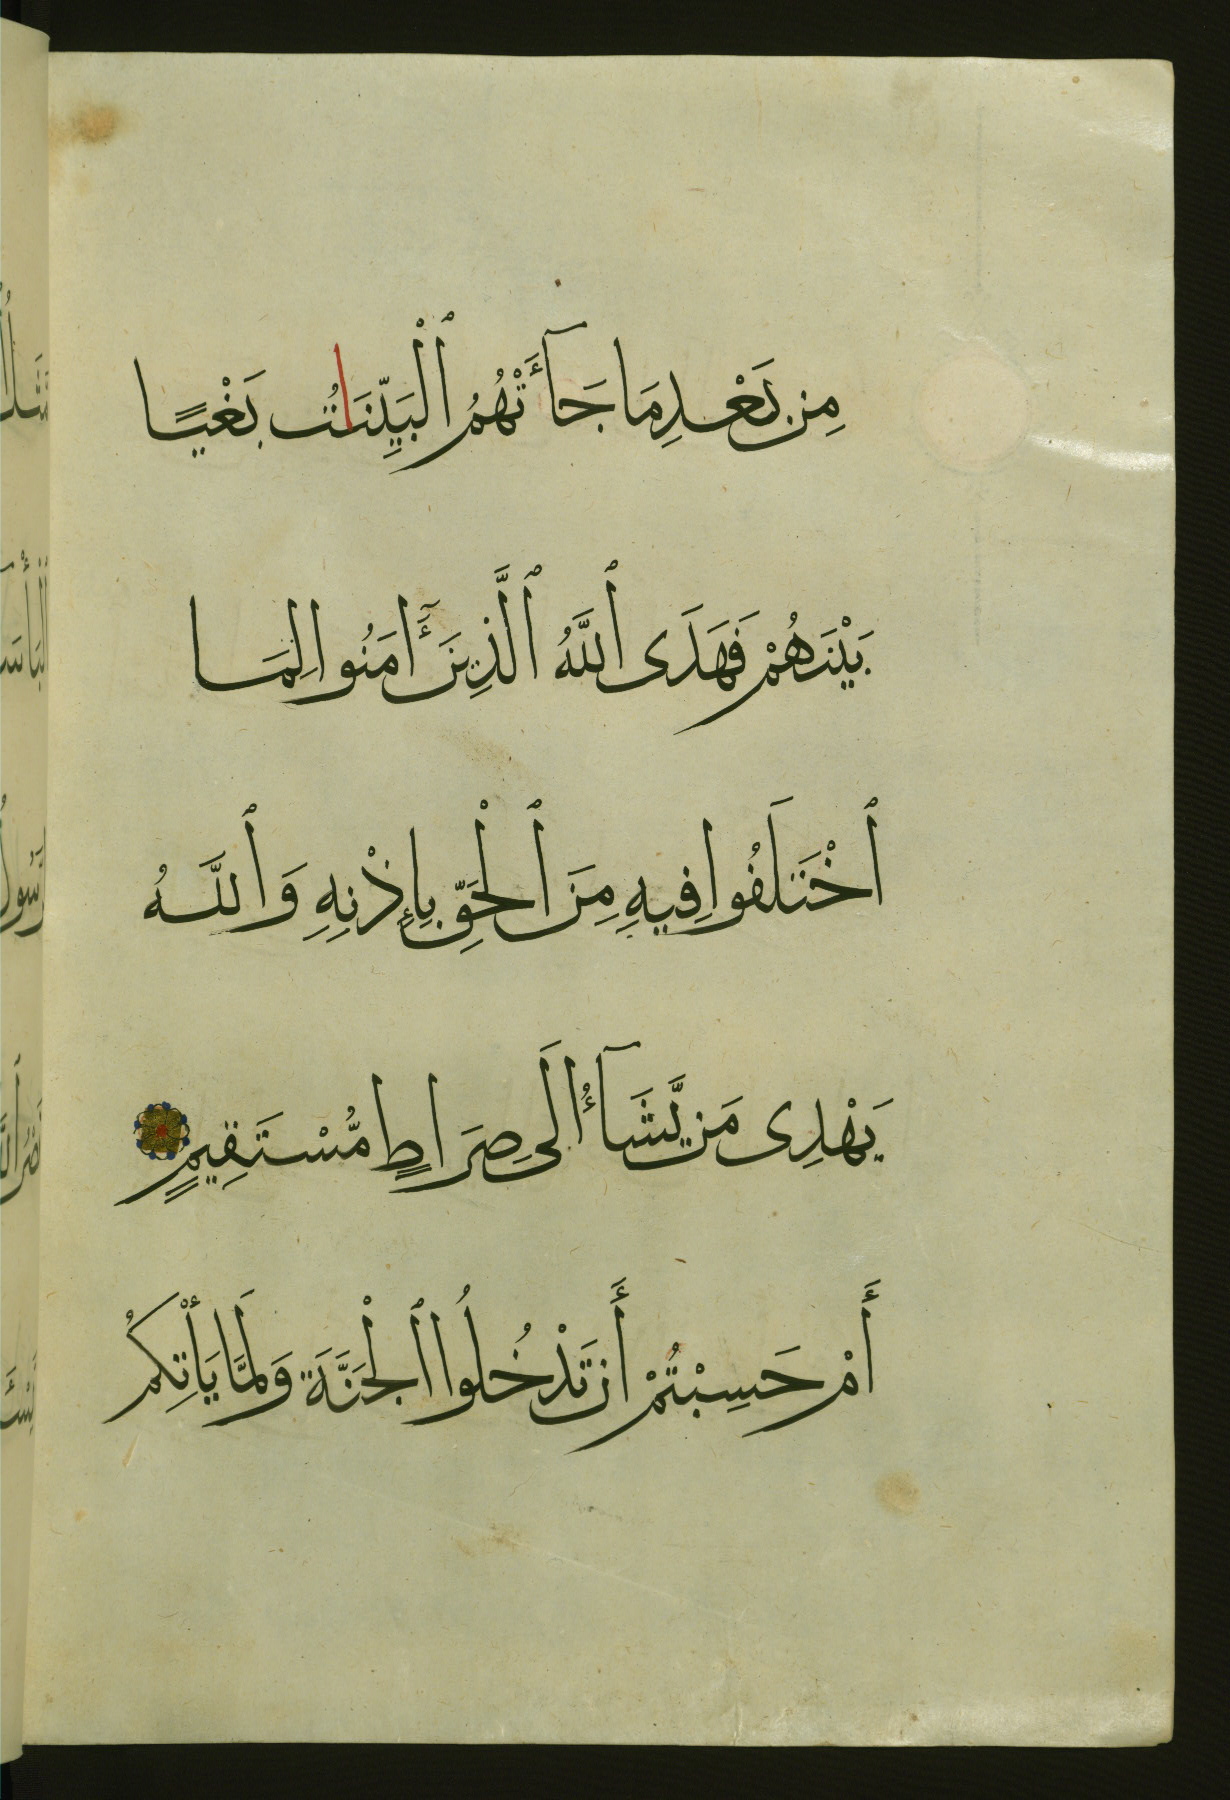 مِنۢ بَعْدِ مَا جَآءَتْهُمُ ٱلْبَيِّنَاتُ بَغْيًا
بَيْنَهُمْ فَهَدَى ٱللَّهُ ٱلَّذِينَ ءَامَنُوا لِمَا
ٱخْتَلَفُوا فِيهِ مِنَ ٱلْحَقِّ بِإِذْنِهِ وَٱللَّهُ
يَهْدِى مَن يَّشَآءُ إلَى صِرَاطٍ مُّسْتَقِيمٍ
أَمْ حَسِبْتُمْ أَن تَدْخُلُوا ٱلْجَنَّةَ وَلَمَّا يَأْتِكُمْ